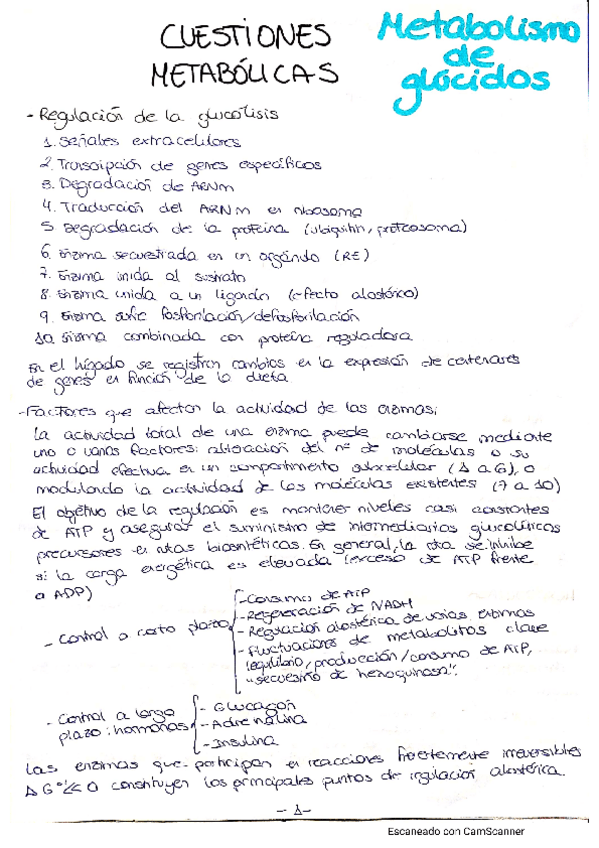 CUESTIONES
METABÓLICAS
Metabolismo
de
glúcidos
- Regulación de la glucólisis
1. Señales extracelulares
2. Transcripción de genes específicos
3. Degradación de ARNm
4. Traducción del ARNm en ribosoma
5. Degradación de la proteína (ubiquitin, proteosoma)
6. Enzima secuestrada en un orgánulo (RE)
7. Enzima unida al sustrato
8. Enzima unida a un ligando (efecto alostérico)
9. Enzima sufre fosforilación/defosforilación
10. Enzima combinada con proteína reguladora
En el hígado se registran cambios en la expresión de centenares
de genes en función de la dieta
- Factores que afectan la actividad de las enzimas:
La actividad total de una enzima puede cambiarse mediante
uno o varios factores: alteración del nº de moléculas o su
actividad efectiva en un compartimento subcelular (1 a 6), o
modulando la actividad de las moléculas existentes (7 a 10)
El objetivo de la regulación es mantener niveles casi constantes
de ATP y asegurar el suministro de intermediarios glucolíticos
precursores en rutas biosintéticas. En general, la ruta se inhibe
si la carga energética es elevada (exceso de ATP frente
a ADP)
- Control a corto plazo
- Consumo de ATP
- Regeneración de NADH
- Regulación alostérica de varias enzimas
- Fluctuaciones de metabolitos clave
(equilibrio, producción/consumo de ATP,
"secuestro de hexoquinasa".
- Control a largo
plazo: hormonas
- Glucagón
- Adrenalina
- Insulina
Las enzimas que participan en reacciones fuertemente irreversibles
ΔG°'<< 0 constituyen los principales puntos de regulación alostérica.
- 1 -
Escaneado con CamScanner